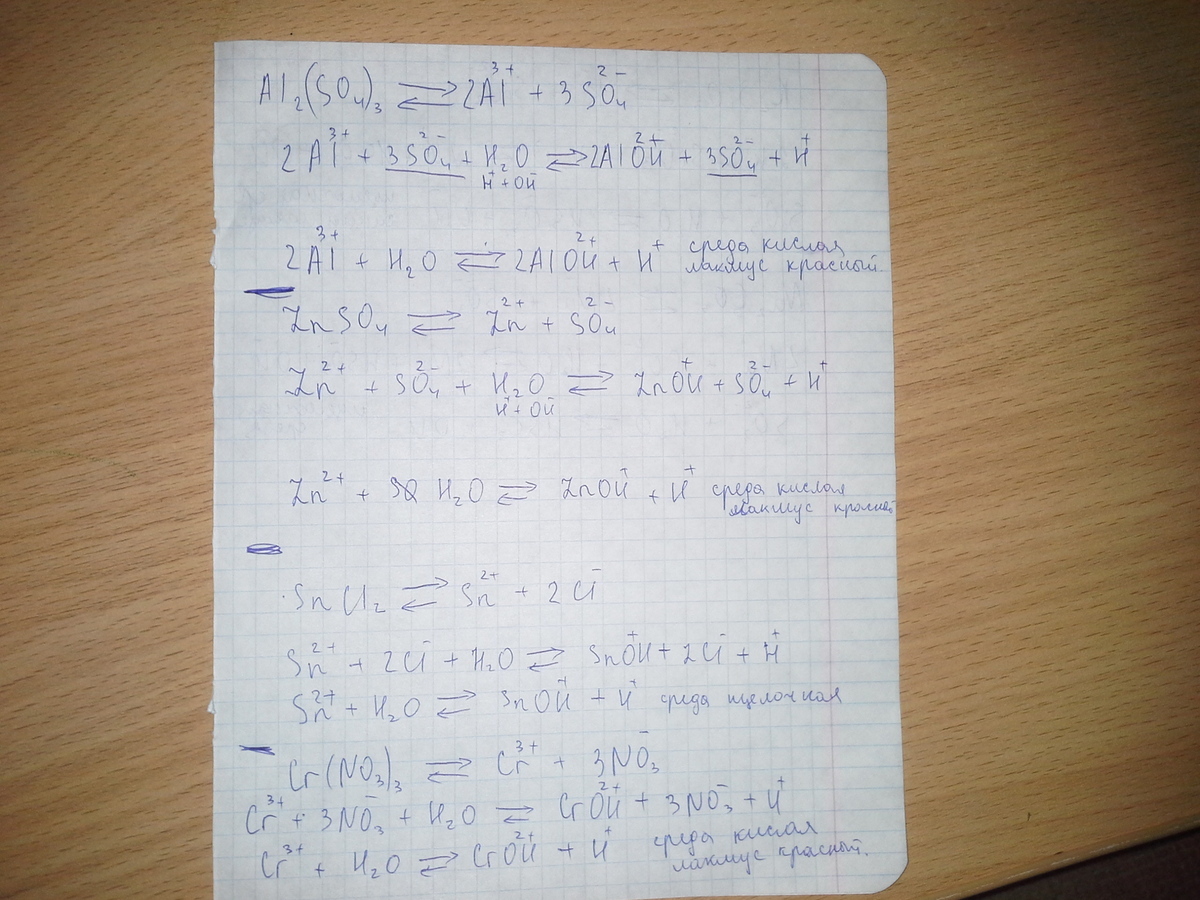 Al₂(SO₄)₃ ⇌ 2Al³⁺ + 3SO₄²⁻
2Al³⁺ + 3SO₄²⁻ + H₂O ⇌ 2AlOH²⁺ + 3SO₄²⁻ + H⁺
H⁺ + OH⁻
2Al³⁺ + H₂O ⇌ 2AlOH²⁺ + H⁺ среда кислая
лакмус красный.
ZnSO₄ ⇌ Zn²⁺ + SO₄²⁻
Zn²⁺ + SO₄²⁻ + H₂O ⇌ ZnOH⁺ + SO₄²⁻ + H⁺
H⁺ + OH⁻
Zn²⁺ + H₂O ⇌ ZnOH⁺ + H⁺ среда кислая
лакмус
SnCl₂ ⇌ Sn²⁺ + 2Cl⁻
Sn²⁺ + 2Cl⁻ + H₂O ⇌ SnOH⁺ + 2Cl⁻ + H⁺
Sn²⁺ + H₂O ⇌ SnOH⁺ + H⁺ среда щелочная
Cr(NO₃)₃ ⇌ Cr³⁺ + 3NO₃⁻
Cr³⁺ + 3NO₃⁻ + H₂O ⇌ CrOH²⁺ + 3NO₃⁻ + H⁺
Cr³⁺ + H₂O ⇌ CrOH²⁺ + H⁺ среда кислая
лакмус красный.